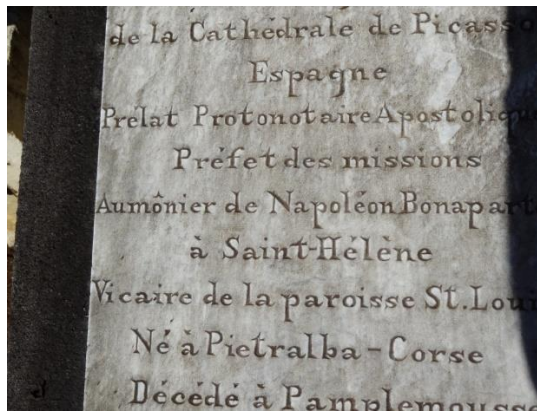 de la Cathédrale de Picasso
Espagne
Prélat Protonotaire Apostolique
Préfet des missions
Aumônier de Napoléon Bonaparte
à Saint-Hélène
Vicaire de la paroisse St. Loui
Né à Pietralba - Corse
Décédé à Pamplemousse